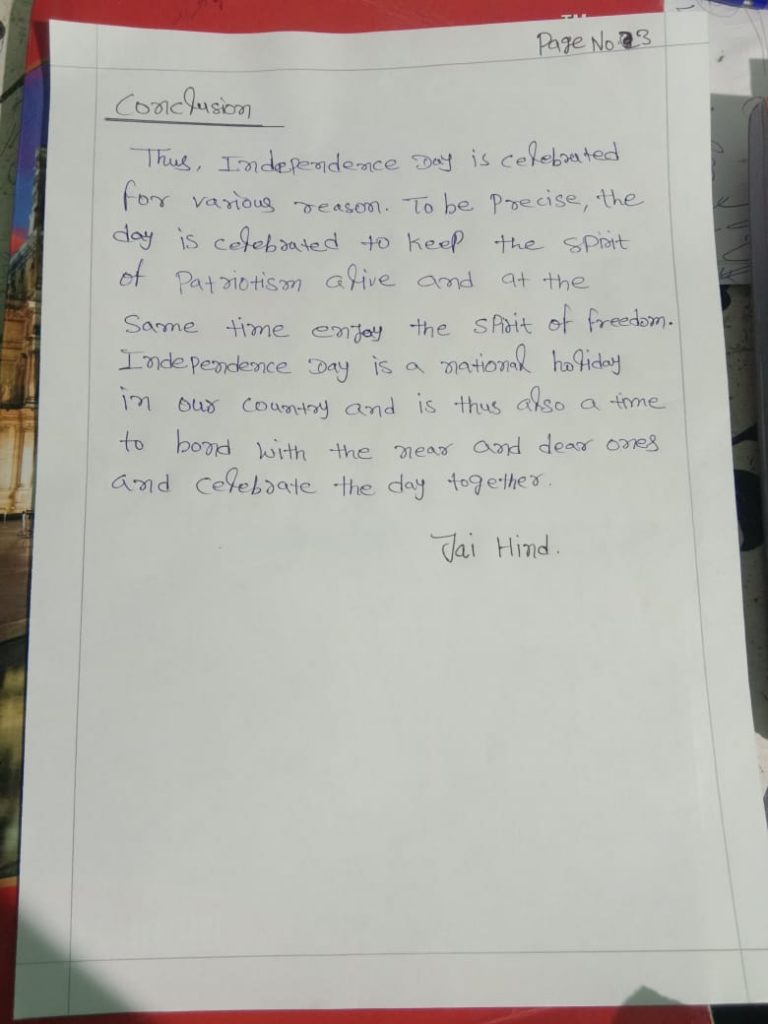 Page No 3
Conclusion
Thus, Independence Day is celebrated
for various reason. To be Precise, the
day is celebrated to keep the spirit
of Patriotism alive and at the
Same time enjoy the spirit of freedom.
Independence Day is a national holiday
in our country and is thus also a time
to bond with the near and dear ones
and celebrate the day together.
Jai Hind.